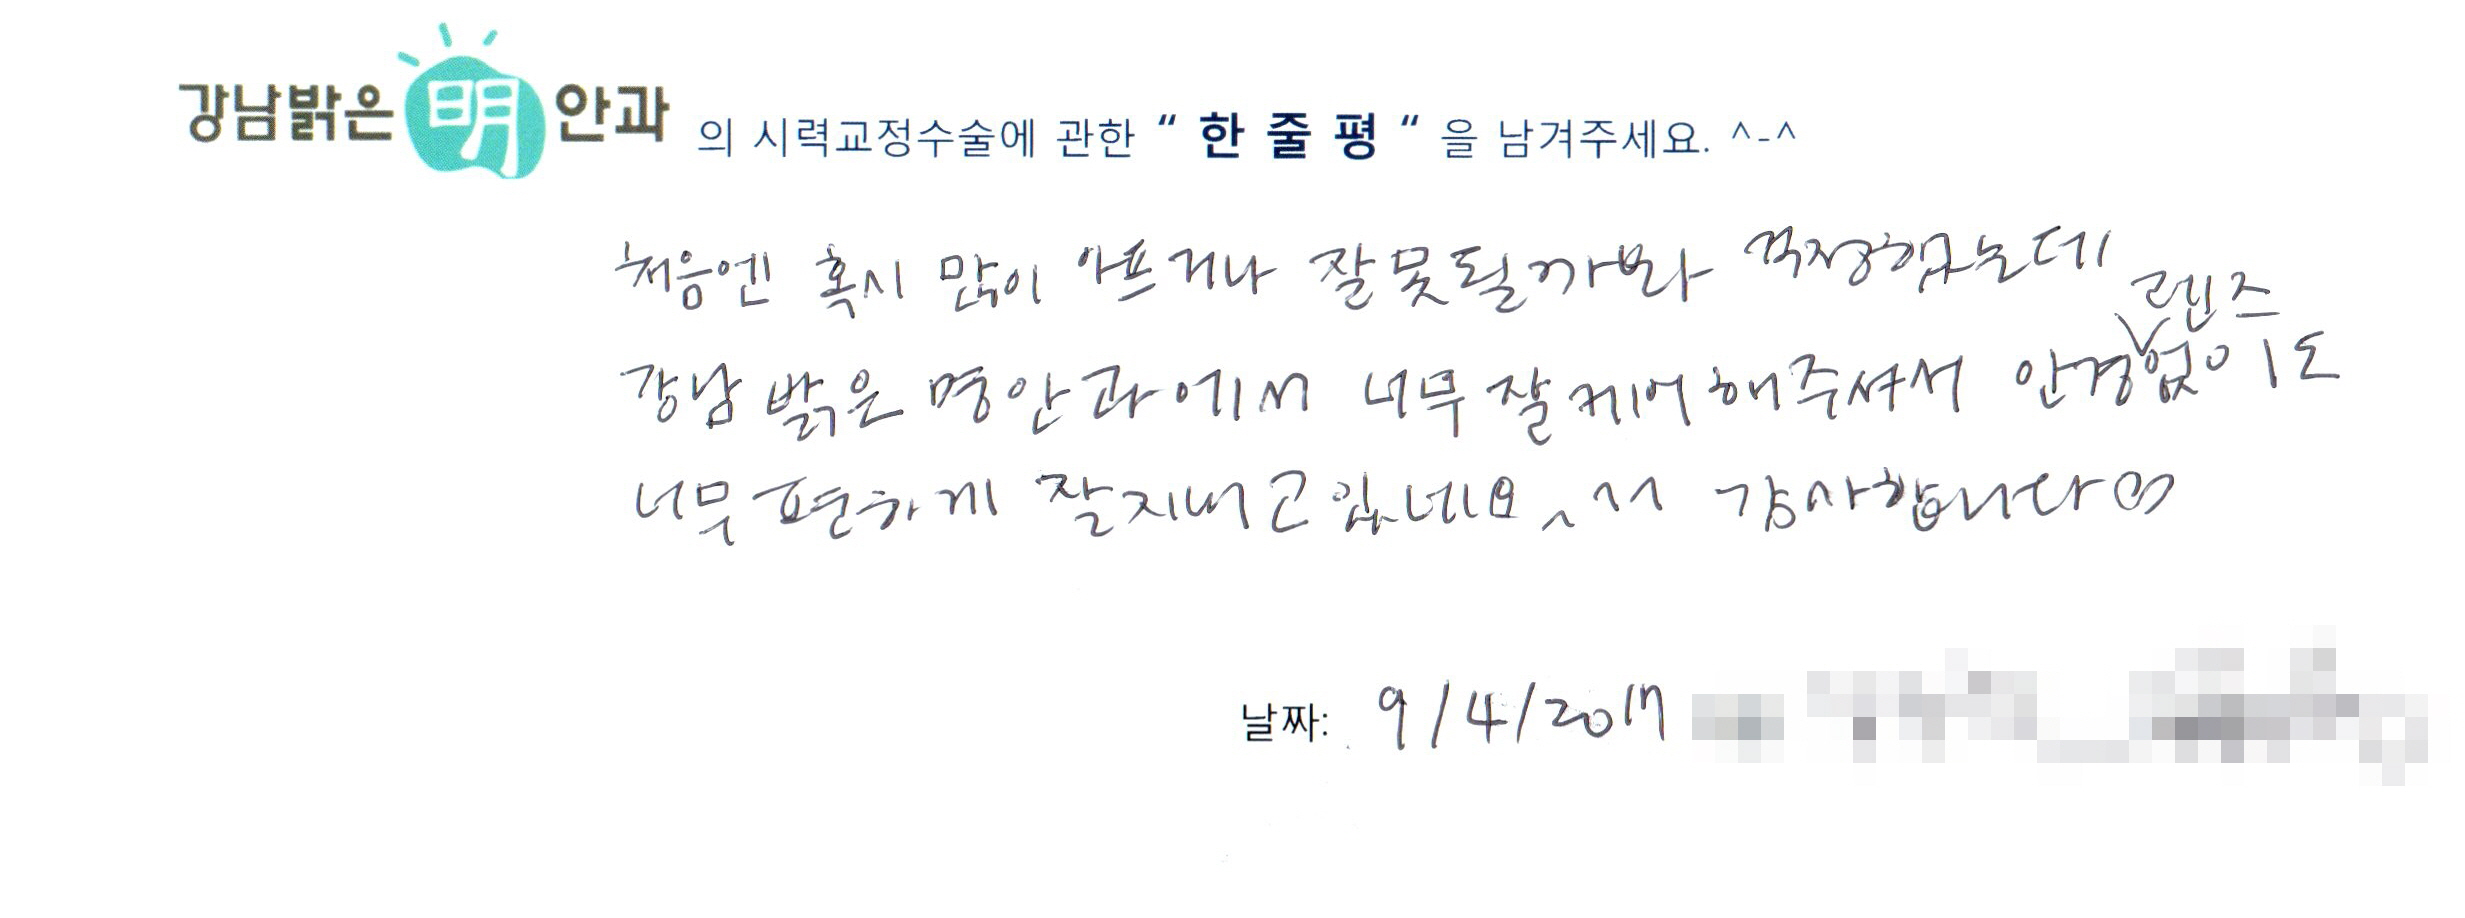 강남밝은明안과 의 시력교정수술에 관한 “ 한 줄 평 “ 을 남겨주세요. ^-^
처음엔 혹시 많이 아프거나 잘못될까봐 걱정했는데
강남 밝은 명안과에서 너무 잘 케어해주셔서 안경 렌즈 없이도
너무 편하게 잘지내고있네요 ^^ 감사합니다 ♡
날짜: 9/4/2017